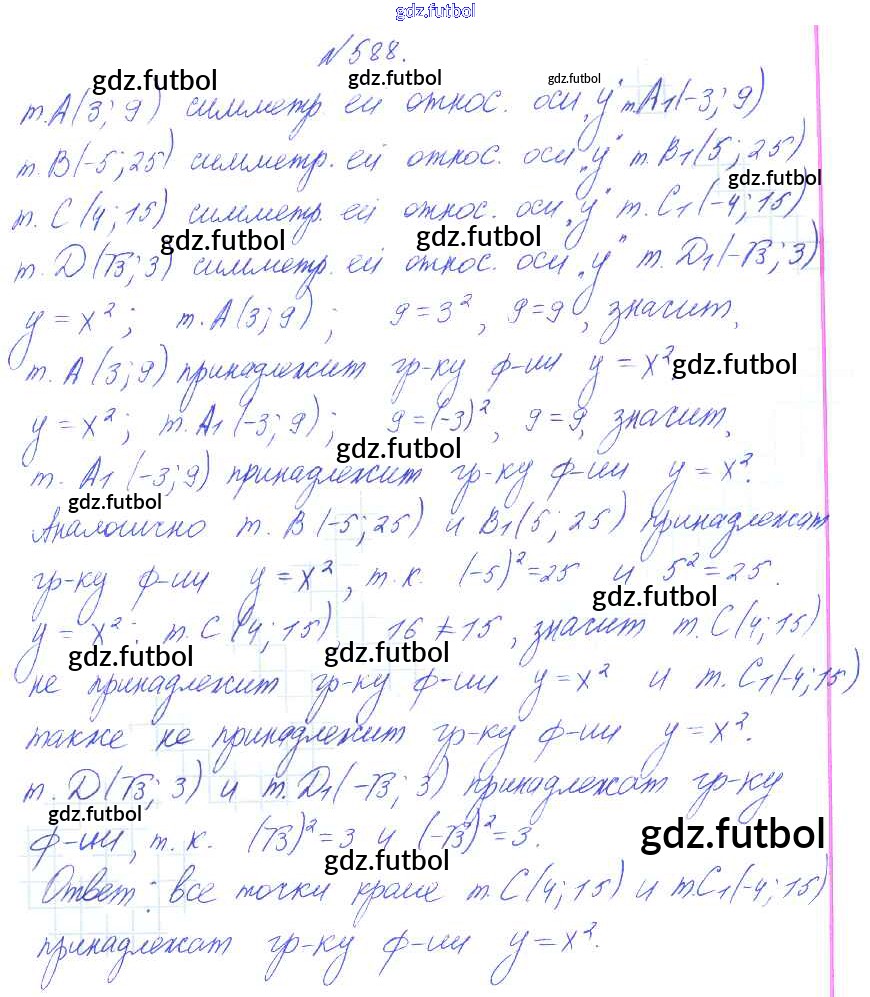 gdz.futbol
№588.
gdz.futbol gdz.futbol gdz.futbol
т.А(3; 9) симметр. ей относ. оси „у" т.А1(-3; 9)
т.В(-5; 25) симметр. ей относ. оси „у" т.В1(5; 25)
gdz.futbol
т.С(4; 15) симметр. ей относ. оси „у" т.С1(-4; 15)
gdz.futbol gdz.futbol
т.D(√3; 3) симметр. ей относ. оси „у" т.D1(-√3; 3)
y = x²; т.А(3; 9); 9=3², 9=9, значит,
т.А(3; 9) принадлежит гр-ку ф-ии y = x² gdz.futbol
y = x²; т.А1(-3; 9); 9=(-3)², 9=9, значит,
gdz.futbol
т. А1(-3; 9) принадлежит гр-ку ф-ии y = x².
gdz.futbol
Аналогично т. В(-5; 25) и В1(5; 25) принадлежат
гр-ку ф-ии y = x², т.к. (-5)²=25 и 5²=25.
gdz.futbol
y = x²; т.С(4; 15), 16≠15, значит т.С(4; 15)
gdz.futbol gdz.futbol
не принадлежит гр-ку ф-ии y=x² и т.С1(-4; 15)
также не принадлежит гр-ку ф-ии y = x².
т.D(√3; 3) и т.D1(-√3; 3) принадлежат гр-ку
gdz.futbol
ф-ии, т.к. (√3)²=3 и (-√3)²=3. gdz.futbol
gdz.futbol
Ответ: все точки кроме т.С(4; 15) и т.С1(-4; 15)
принадлежат гр-ку ф-ии y = x².